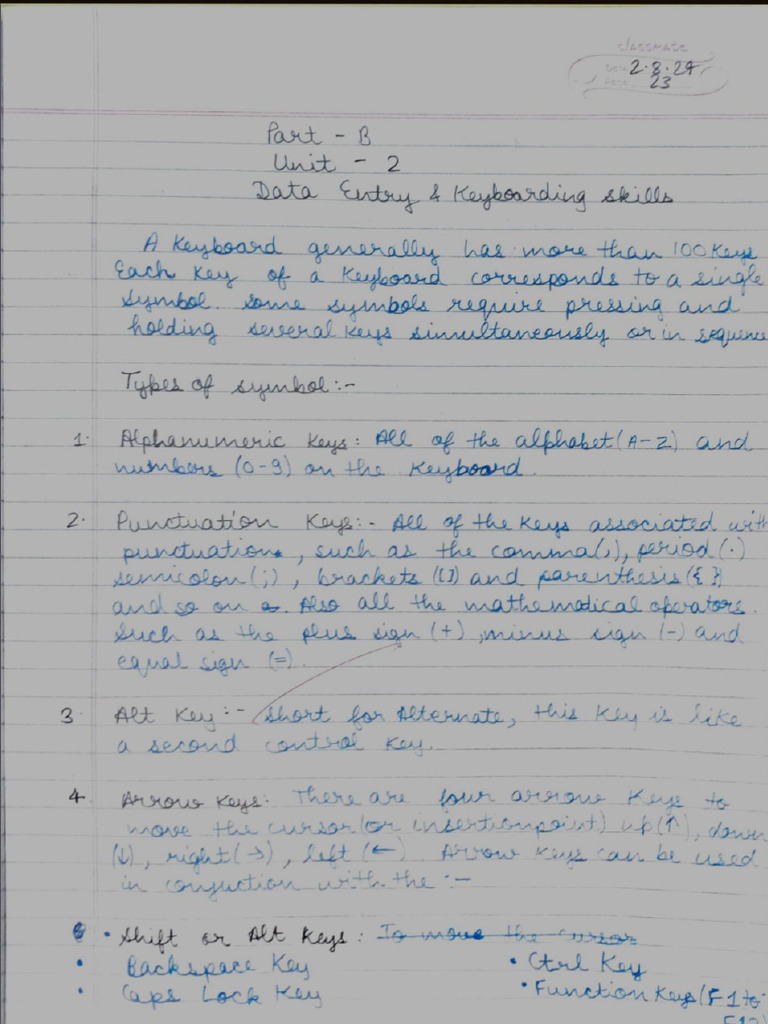 classmate
Date 2.8.24
Page 23
Part - B
Unit - 2
Data Entry & Keyboarding skills
A Keyboard generally has more than 100 Keys
Each Key of a Keyboard corresponds to a single
symbol. Some symbols require pressing and
holding several Keys simultaneously or in sequence
Types of symbol:-
1. Alphanumeric Keys: All of the alphabet (A-Z) and
numbers (0-9) on the Keyboard.
2. Punctuation Keys:- All of the Keys associated with
punctuation, such as the comma(,), period (.)
semicolon (;), brackets ([]) and parenthesis ({ })
and so on. Also all the mathematical operators.
Such as the plus sign (+), minus sign (-) and
equal sign (=).
3 Alt Key:- Short for Alternate, this Key is like
a second control Key.
4 Arrow Keys: There are four arrow Keys to
move the cursor (or insertion point) up(↑), down
(↓), right(→), left (←). Arrow Keys can be used
in conjuction with the :-
• Shift or Alt Keys: To move the cursor
• Backspace Key • Ctrl Key
• Caps Lock Key • Function Keys (F1 to
F12)